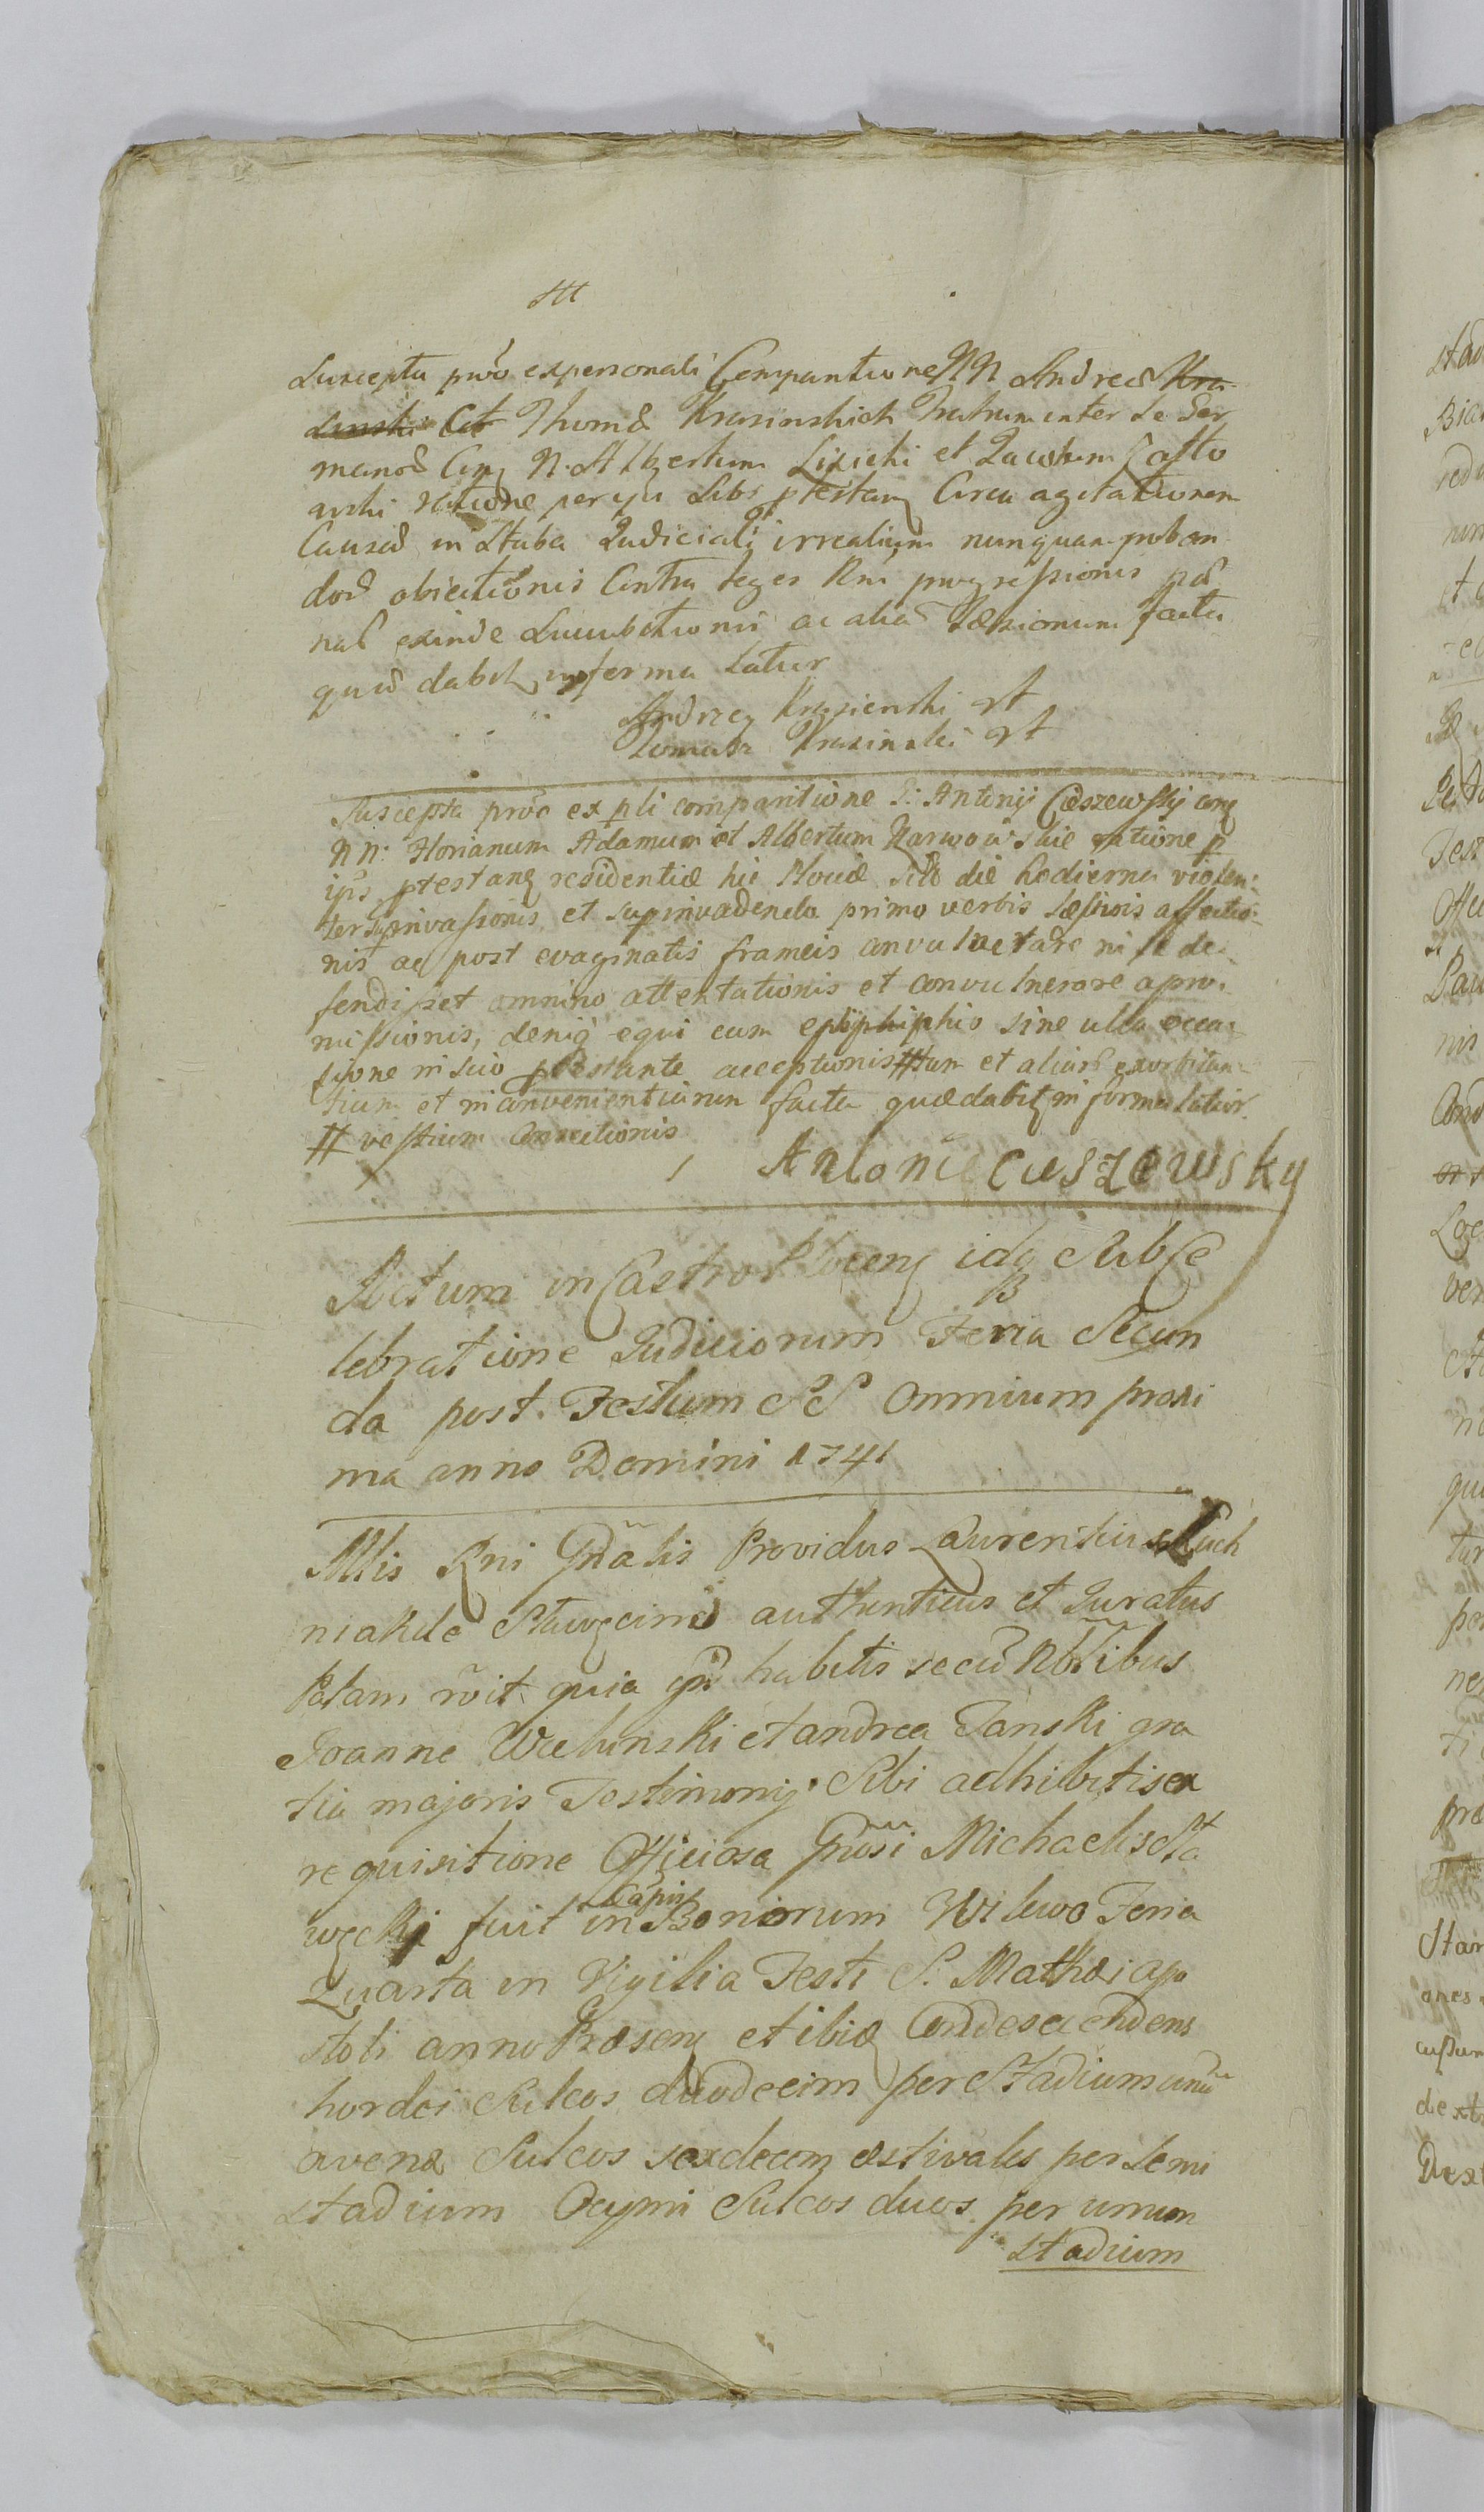 Suscepta prõ ex personali Comparitione NN Andreæ Kra
sinski Et Thomæ Krasinskich Fratrum inter se Ger
manor Cting N. Albertum Lisicki et Jacobum Casto
wski ratione per ips sibi ptestang Circa agitationem
Causæ in Stuba Judiciali irrealium nunquam proban
dor obiectionis Contra leges Rni progressionis pæ
nas exinde Sucubitionis ac aliar Læsionum facta
quæ dabit in forma Latior
Andrzey Krasienski st
Tomasz Krasinski st
Suscepta prõc ex pli comparitione G: Antonij Cieszewskij cong
NN: Florianum Adamum et Albertum Narwowskie ratione p
ips ptestang residentiæ hic Plociæ sitæ die hodierna violen:
ter supinvasionis et supinvadendo primo verbis læsivis affectio:
nis ac post evaginatis frameis convulnerare ni se de:
fendisset omnino attentationis et convulnerare apro:
missionis, deniq equi cum ephiphio sine ulla occa:
sione inscio ptestante acceptionis # tum et aliar exorbitan:
tium et inconvenientiarum facta quæ dabitq in forma latior.
# vestium Conscitionis
Antoni Cieszewsky
Actum in Castro Plocens idq sub Ce
lebratione Judiciorum Feria Secun
da post Festum SS Omnium proxi
ma anno Domini 1741
Mlis Rni Gñalis Providus Laurentius Luch
niak de Stawęcino authenticus et Juratus
Palam rõit quia ipse habitis secũ Nbilibus
Joanne Wielunski et andrea Tanski gra
tia majoris Testimonij Sibi adhibitis ex
requisitione Officiosa Gnõsi Michaelis Sta
węcki fuit in Campis Bonorum Wilewo Feria
Quarta in Vigilia Festi S: Mathæi apo
stoli anno Præsens et ibidem Condescendens
hordei Sulcos duodecim per Stadium unũ
avenæ Sulcos sexdecem æstivales per Semi
stadium Ocymi Sulcos duos per unum
stadium